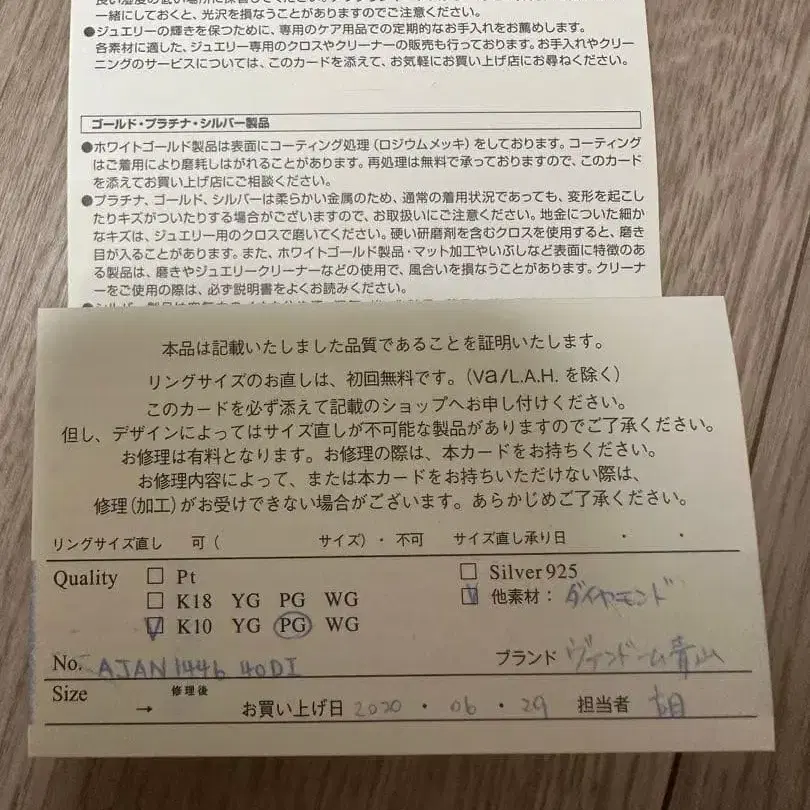 一緒にしておくと、光沢を損なうことがありますのでご注意ください。
●ジュエリーの輝きを保つために、専用のケア用品での定期的なお手入れをお薦めします。
各素材に適した、ジュエリー専用のクロスやクリーナーの販売も行っております。お手入れやクリー
ニングのサービスについては、このカードを添えて、お気軽にお買い上げ店にお尋ねください。
ゴールド・プラチナ・シルバー製品
●ホワイトゴールド製品は表面にコーティング処理(ロジウムメッキ)をしております。コーティング
はご着用により磨耗しはがれることがあります。再処理は無料で承っておりますので、このカード
を添えてお買い上げ店にご相談ください。
●プラチナ、ゴールド、シルバーは柔らかい金属のため、通常の着用状況であっても、変形を起こし
たりキズがついたりする場合がございますので、お取扱いにご注意ください。地金についた細か
なキズは、ジュエリー用のクロスで磨いてください。硬い研磨剤を含むクロスを使用すると、磨き
目が入ることがあります。また、ホワイトゴールド製品・マット加工やいぶしなど表面に特徴のあ
る製品は、磨きやジュエリークリーナーなどの使用で、風合いを損なうことがあります。クリーナ
ーをご使用の際は、必ず説明書をよくお読みください。
本品は記載いたしました品質であることを証明いたします。
リングサイズのお直しは、初回無料です。(Va/L.A.H. を除く)
このカードを必ず添えて記載のショップへお申し付けください。
但し、デザインによってはサイズ直しが不可能な製品がありますのでご了承ください。
お修理は有料となります。お修理の際は、本カードをお持ちください。
お修理内容によって、または本カードをお持ちいただけない際は、
修理(加工)がお受けできない場合がございます。あらかじめご了承ください。
リングサイズ直し 可( サイズ)・不可 サイズ直し承り日 ・ ・
Quality □ Pt □ Silver925
□ K18 YG PG WG ☑ 他素材:ダイヤモンド
☑ K10 YG PG WG
No. AJAN1446 40DI ブランド ヴァンドーム青山
Size → 修理後 お買い上げ日 2020・06・29 担当者